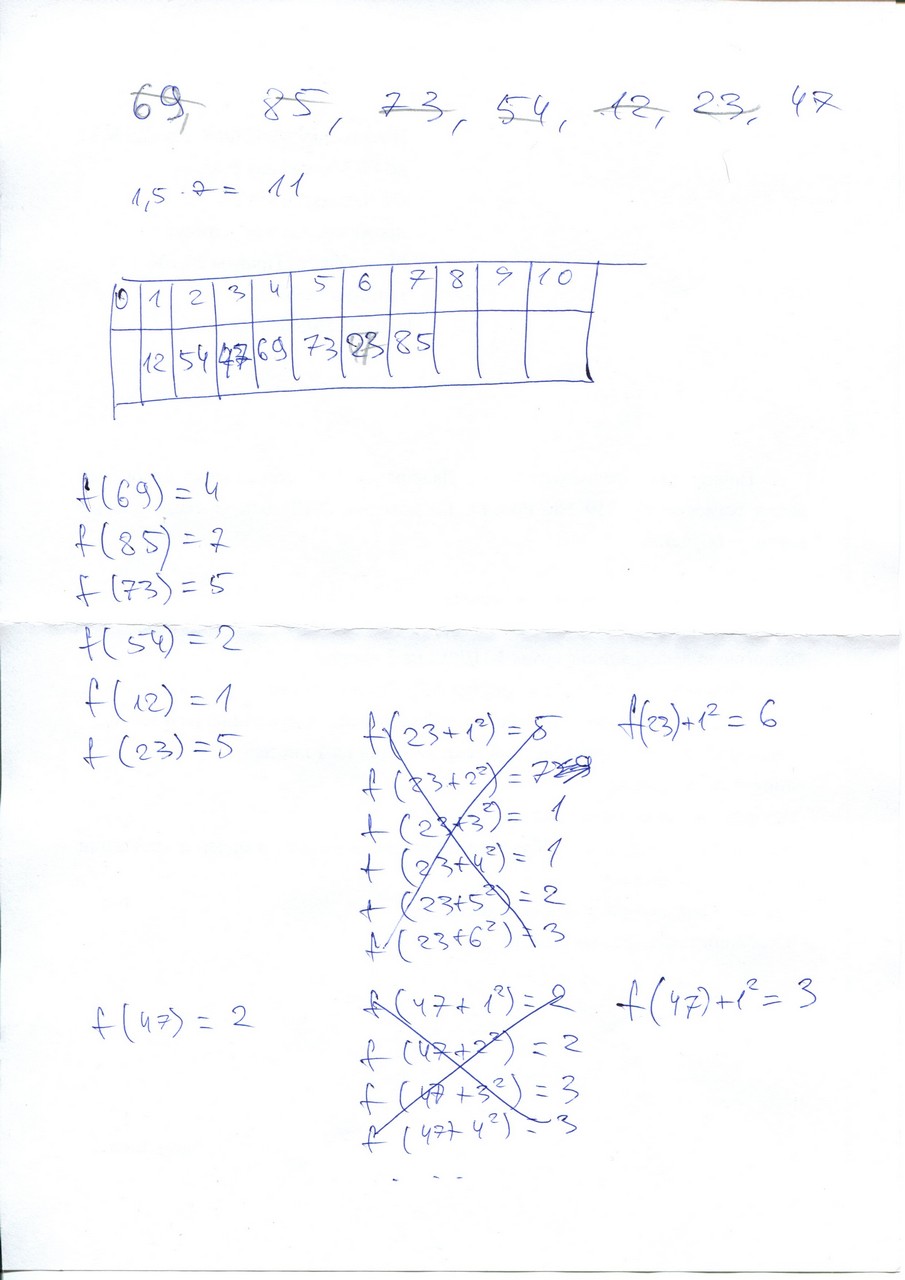 69, 85, 73, 54, 12, 23, 47
1,5 · 7 = 11
0 1 2 3 4 5 6 7 8 9 10
12 54 47 69 73 23 85
f(69) = 4
f(85) = 7
f(73) = 5
f(54) = 2
f(12) = 1
f(23) = 5
f(23+1²) = 5 f(23)+1² = 6
f(23+2²) = 7
f(23+3²) = 1
f(23+4²) = 1
f(23+5²) = 2
f(23+6²) = 3
f(47) = 2 f(47+1²) = 2 f(47)+1² = 3
f(47+2²) = 2
f(47+3²) = 3
f(47+4²) = 3
. - -